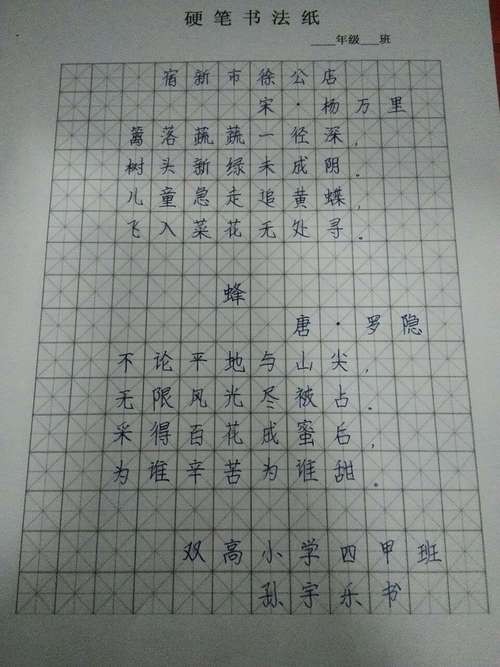 硬笔书法纸
____年级___班
宿新市徐公店
宋·杨万里
篱落蔬蔬一径深，
树头新绿未成阴。
儿童急走追黄蝶，
飞入菜花无处寻。
蜂
唐·罗隐
不论平地与山尖，
无限风光尽被占。
采得百花成蜜后，
为谁辛苦为谁甜。
双高小学四甲班
孙宇乐书